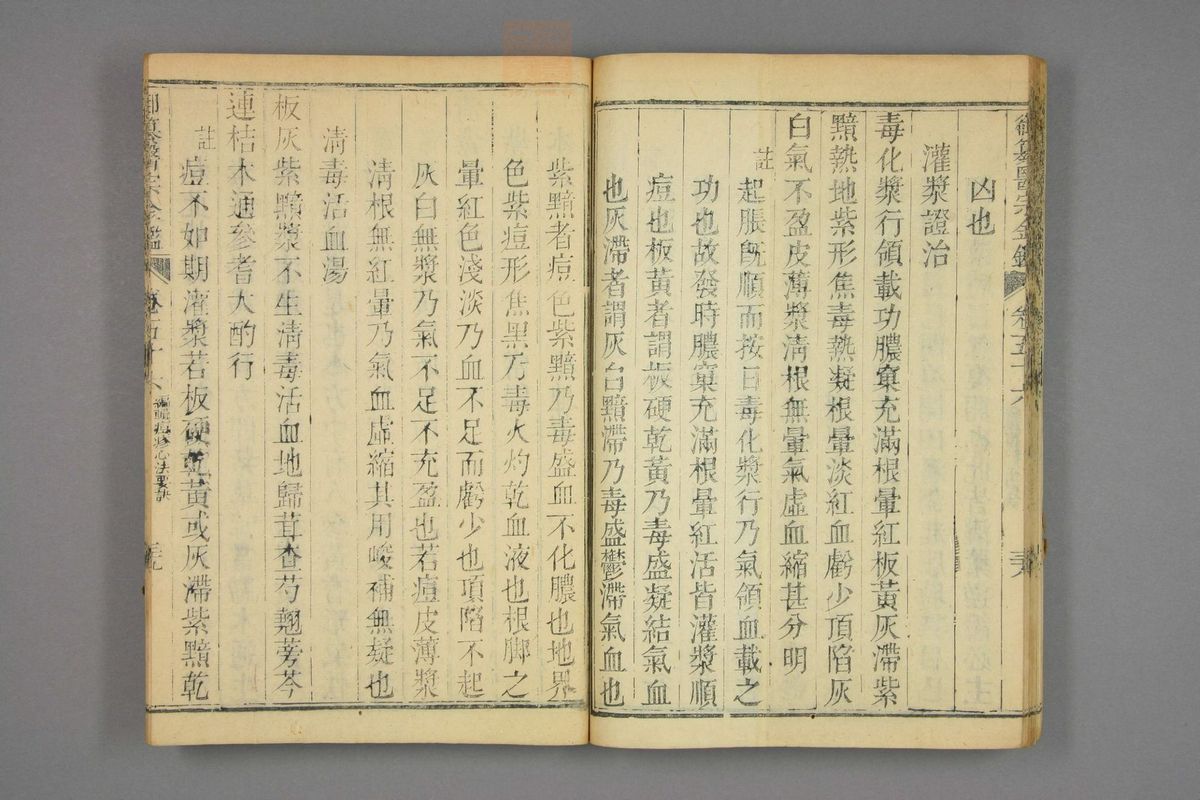 御纂醫宗金鑑
卷五十六
凶也
灌漿證治
毒化漿行領載功膿窠充滿根暈紅板黃灰滯紫
黯熱地紫形焦毒熱凝根暈淡紅血虧少頂陷灰
白氣不盈皮薄漿清根無暈氣虛血縮甚分明
註
起脹既順而按日毒化漿行乃氣領血載之
功也故發時膿窠充滿根暈紅活皆灌漿順
痘也板黃者謂板硬乾黃乃毒盛凝結氣血
也灰滯者謂灰白黯滯乃毒盛鬱滯氣血也
紫黯者痘色紫黯乃毒盛血不化膿也地界
色紫痘形焦黑乃毒火灼乾血液也根脚之
暈紅色淺淡乃血不足而虧少也項陷不起
灰白無漿乃氣不足不充盈也若痘皮薄漿
清根無紅暈乃氣血虛縮其用峻補無疑也
清毒活血湯
板灰紫黯漿不生清毒活血地歸茸查芍翹蒡芩
連桔木通參耆大酌行
註
痘不如期灌漿若板硬乾黃或灰滯紫黯乾
御纂醫宗金鑑
卷五十六
編輯痘疹心法要訣